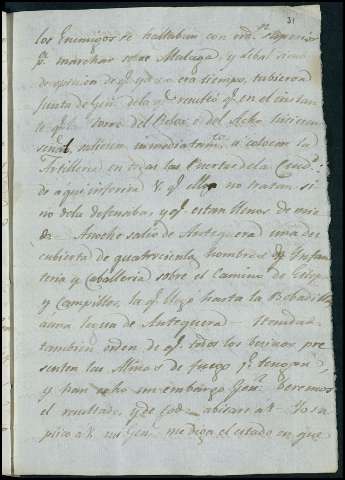 31
los Enemigos se hallaban con ordn. Superior
pa. marchar sobre Malaga, y
de opinion de qe. ya era tiempo, tubieron
Junta de Genl. de la qe. resultó qe. en el instan
te qe. la torre del Relox del hiciesen
señal saliesen inmediatamte. a colocar la
Artilleria en todas las Puertas de la Ciudd.:
de aqui inferirá V. qe. ellos no tratan si
no de la defensiba, y qe. estan llenos de mie
do. Anoche salió de Antequera una des
cubierta de quatrocientos hombres de Infan
teria y Caballeria sobre el Camino de
y Campillos, la qe. llegó hasta la Bobadilla
a una legua de Antequera
tambien orden de qe. todos los becinos pre
senten las Armas de fuego qe. tengan,
y han echo un embargo Genl. Veremos
el resultado, y de todo abisaré a V. Yo su
plico a V. mi Genl. me diga el estado en que